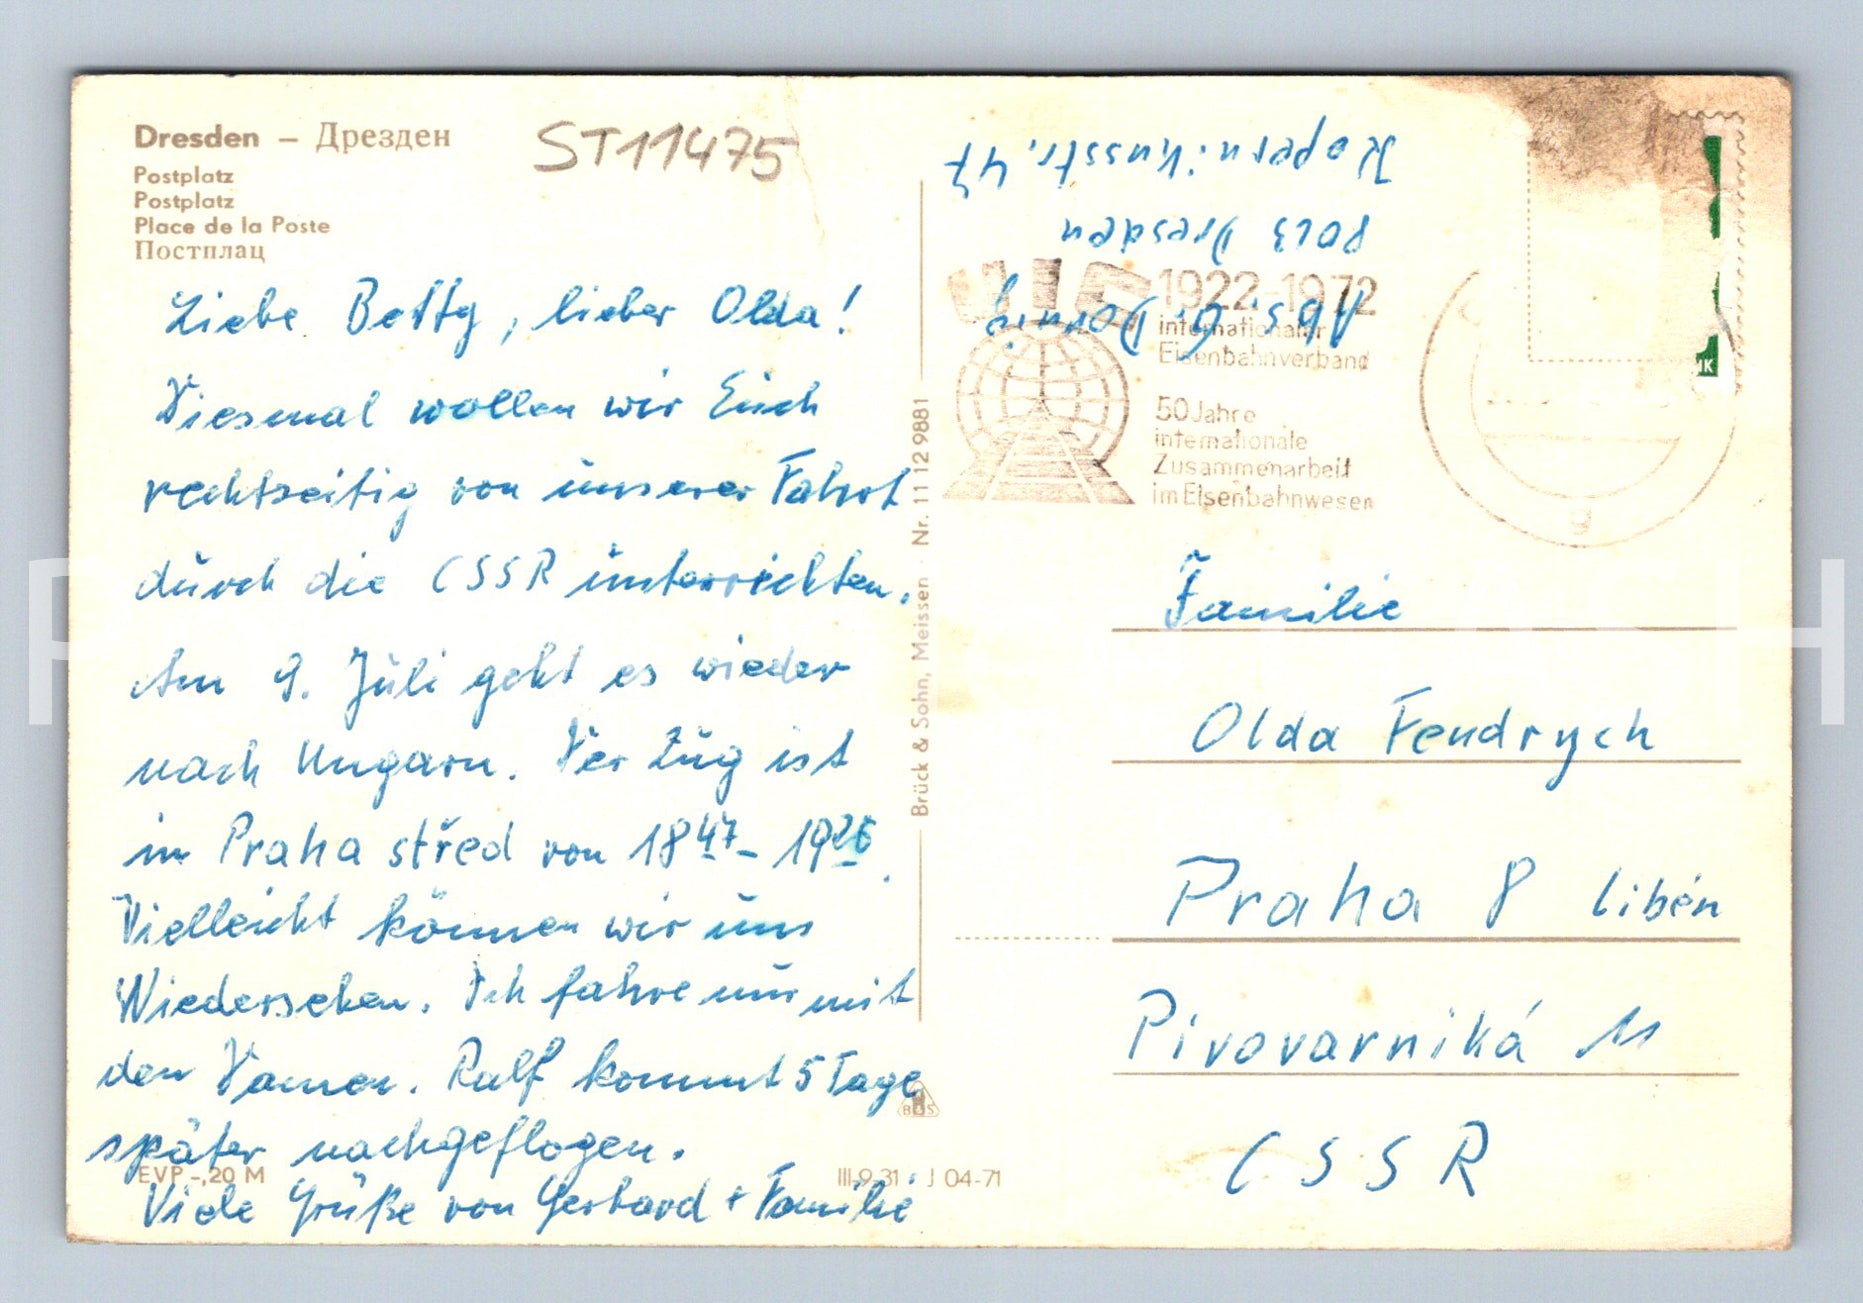 Dresden – Дрезден
Postplatz
Postplatz
Place de la Poste
Постплац
ST11475
Liebe Betty, lieber Olda!
Diesmal wollen wir Euch
rechtzeitig von unserer Fahrt
durch die CSSR unterrichten.
Am 9. Juli geht es wieder
nach Ungarn. Der Zug ist
in Praha střed von 18 47 - 19 26.
Vielleicht können wir uns
Wiedersehen. Ich fahre nur mit
den Damen. Ralf kommt 5 Tage
später nachgeflogen.
Viele Grüße von Gerhard + Familie
EVP -,20 M
III-9-31 · J 04-71
Brück & Sohn, Meissen · Nr. 11 12 9881
B&S
Abs. G.
8013 Dresden
Kopernikusstr. 47
UIC 1922-1972
internationaler
Eisenbahnverband
50 Jahre
internationale
Zusammenarbeit
im Eisenbahnwesen
g
Familie
Olda Fendrych
Praha 8 Libén
Pivovarniká 11
CSSR